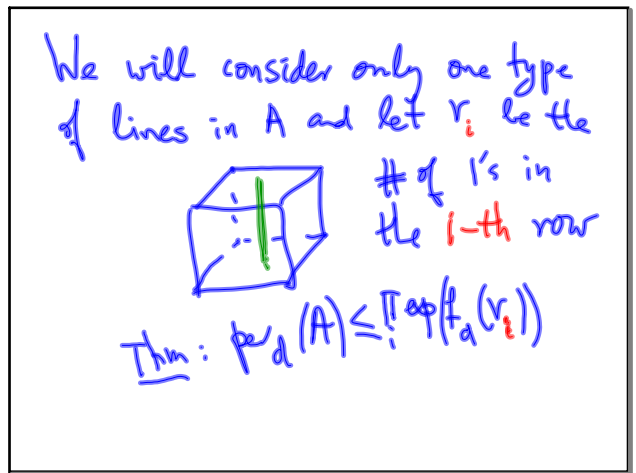 We will consider only one type
of lines in A and let r_i be the
# of 1's in
the i-th row
Thm: per_d(A) ≤ ∏_i exp(f_d(r_i))